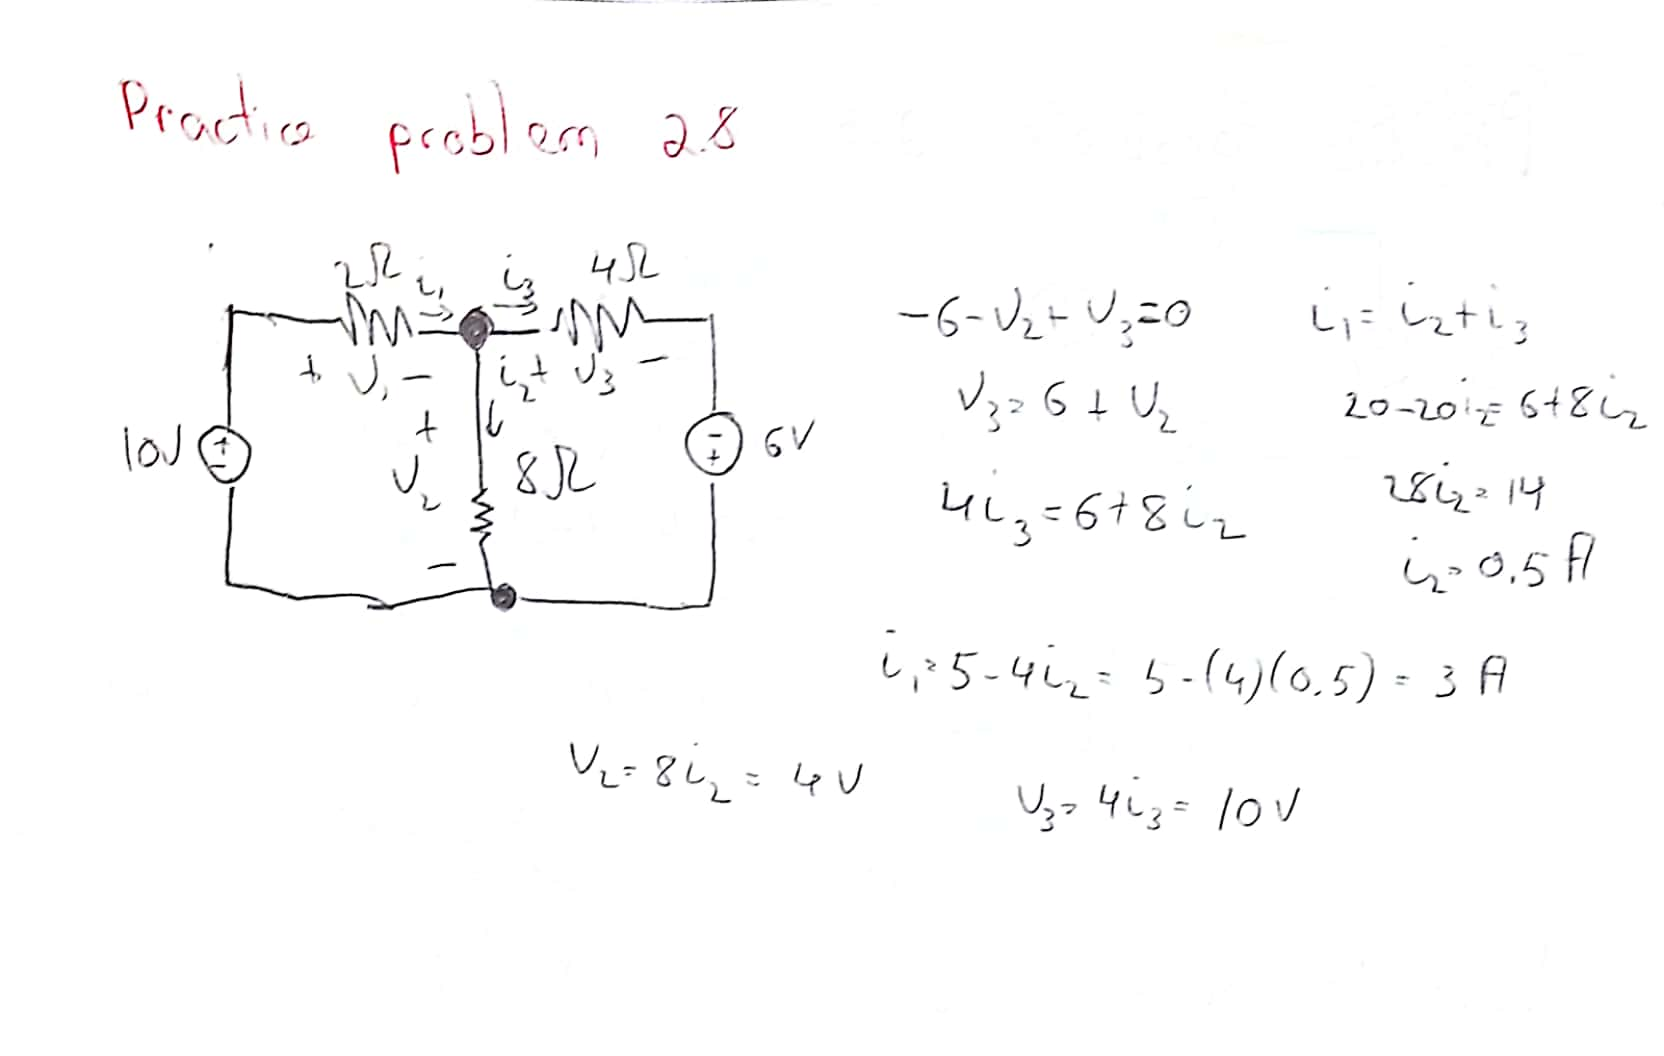 Practice problem 2.8
2Ω i₁ i₃ 4Ω
+ V₁ - i₂ + V₃ -
10V + - + V₂ - 8Ω - + 6V
-6-V₂+V₃=0
V₃=6+V₂
4i₃=6+8i₂
i₁=i₂+i₃
20-20i₂=6+8i₂
28i₂=14
i₂=0.5 A
i₁=5-4i₂=5-(4)(0.5)=3 A
V₂=8i₂=4V
V₃=4i₃=10V